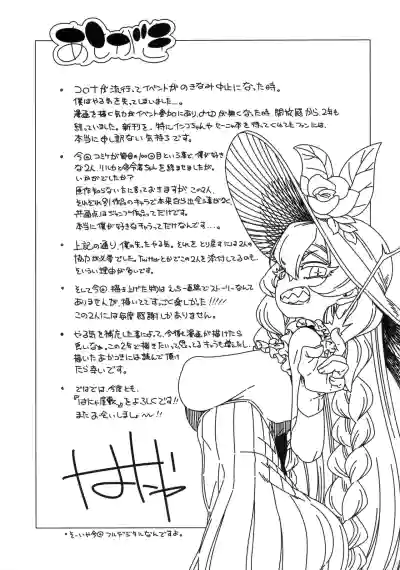 あしがき
・コロナが流行ってイベントがのきなみ中止になった時。
僕はやる気を失ってしまいました…。
漫画を描く気力がイベント参加にあり、が無くなった時 開放感から2年も
経っていました。新刊を、特にインコちゃんやを待ってくれてたファンには、
本当に申し訳ない気持ちです。
・今回コミケが節目の100回目という事で、僕が好き
な2人、リルカと令ちゃんを絡ませましたが、
いかがでしたか?
原作知らない方に言っておきますが この2人、
それぞれ別作品のキャラで本来自ら出会う事がなく
共通点はジャンプ作品ってだけです。
本当に僕が好きなキャラってだけなんです…。
・上記の通り、僕の失ったやる気。それをとり戻すには2人の
協力が必要でした。Twitterとかでこの2人を添付してるのも、
そういう理由が多いです。
・そして今回 描き上げた物は エロ一直線でストーリーなんて
ありませんが、描いてですっごく楽しかった!!!!
この2人には毎度感謝しかありません。
・やる気を補充した事によって、今後も漫画が描けたら
良いなぁ。この2年で描きたいって思ってるキャラも増えたし、
描いたあかつきには読んで頂け
たら幸いです。
・ではでは、今度とも、
『はにゃ屋敷』をよろしくです!!
またお会いしましょ〜〜!!
はにゃ
*そーいや今回 フルデジタルなんですよ。